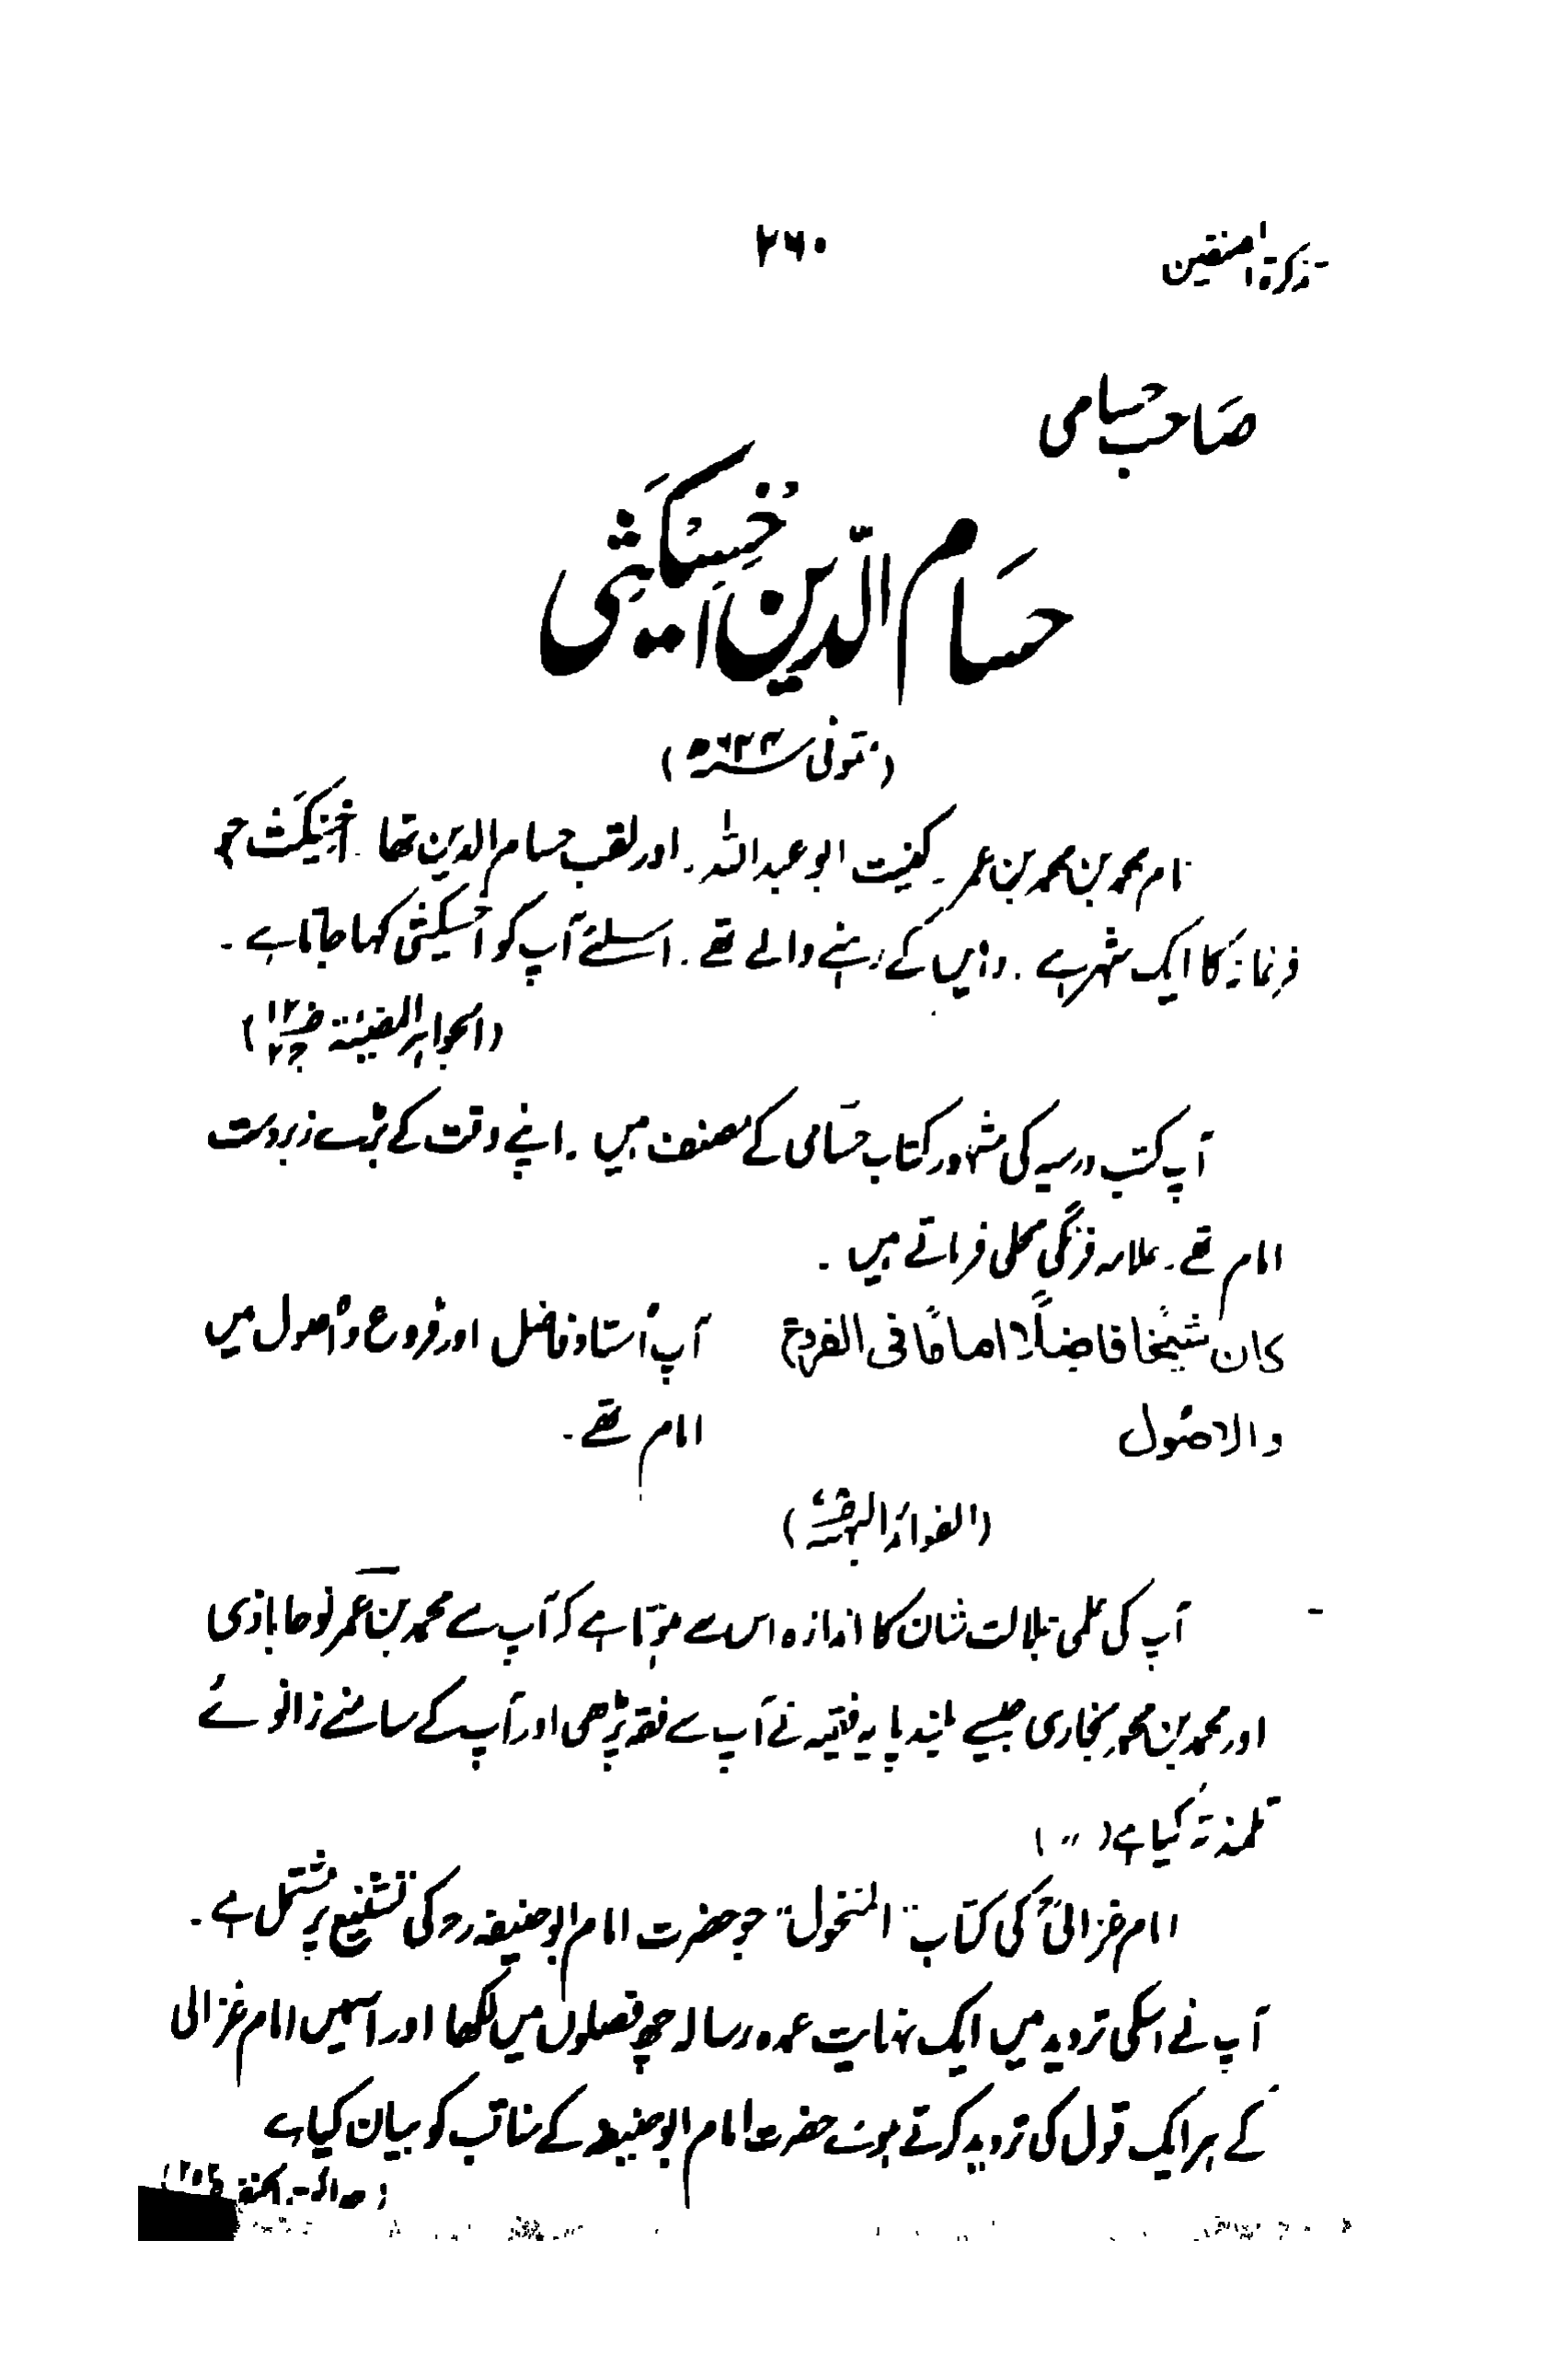 تذکرۃ المصنفین ۲۶۰
صاحب حسامی
حسام الدین اخسیکثی
(متوفی ۶۴۴ھ)
نام محمد بن محمد بن عمر ۔ کنیت ابو عبداللہ ۔ اور لقب حسام الدین تھا ۔ اخسیکث جو
فرغانہ کا ایک شہر ہے ۔ وہیں کے رہنے والے تھے ۔ اسلئے آپ کو اخسیکثی کہا جاتا ہے ۔
(الجواہر المضیئۃ
آپ کتب درسیہ کی مشہور کتاب حسامی کے مصنف ہیں ۔ اپنے وقت کے بڑے زبردست
امام تھے ۔ علامہ فرنگی محلی فرماتے ہیں ۔
كان شيخا فاضلًا اماما فی الفروع آپ اُستاد فاضل اور فروع و اُصول میں
والاصول امام تھے ۔
(الفوائد البہیہ)
آپ کی علمی جلالت شان کا اندازہ اس سے ہوتا ہے کہ آپ سے محمد بن عمر نوحاباذی
اور محمد بن محمد بخاری جیسے بلند پایہ فقیہ نے آپ سے فقہ پڑھی اور آپ کے سامنے زانوئے
تلمذ تہ کیا ہے ( 〃 )
امام غزالیؒ کی کتاب "المنخول" جو حضرت امام ابو حنیفہ رح کی تشنیع پر مشتمل ہے ۔
آپ نے اسکی تردید میں ایک نہایت عمدہ رسالہ چھ فصلوں میں لکھا اور اسمیں امام غزالی
کے ہر ایک قول کی تردید کرتے ہوئے حضرت امام ابو حنیفہ کے مناقب کو بیان کیا ہے